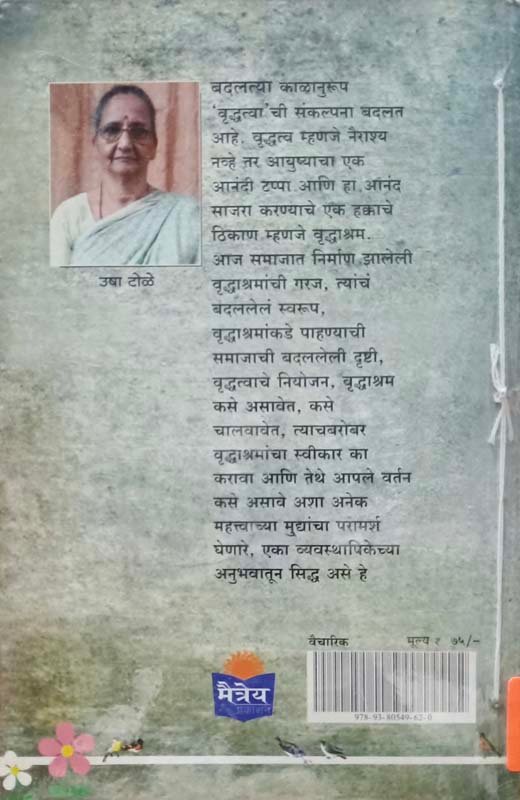 बदलत्या काळानुरूप
'वृद्धत्वा'ची संकल्पना बदलत
आहे. वृद्धत्व म्हणजे नैराश्य
नव्हे तर आयुष्याचा एक
आनंदी टप्पा आणि हा आनंद
साजरा करण्याचे एक हक्काचे
ठिकाण म्हणजे वृद्धाश्रम.
आज समाजात निर्माण झालेली
वृद्धाश्रमांची गरज, त्यांचं
बदललेलं स्वरूप,
वृद्धाश्रमांकडे पाहण्याची
समाजाची बदललेली दृष्टी,
वृद्धत्वाचे नियोजन, वृद्धाश्रम
कसे असावेत, कसे
चालवावेत, त्याचबरोबर
वृद्धाश्रमांचा स्वीकार का
करावा आणि तेथे आपले वर्तन
कसे असावे अशा अनेक
महत्त्वाच्या मुद्यांचा परामर्श
घेणारे, एका व्यवस्थापिकेच्या
अनुभवातून सिद्ध असे हे
उषा टोळे
वैचारिक मूल्य र ७५/-
मैत्रेय
प्रकाशन
978-93-80549-62-0